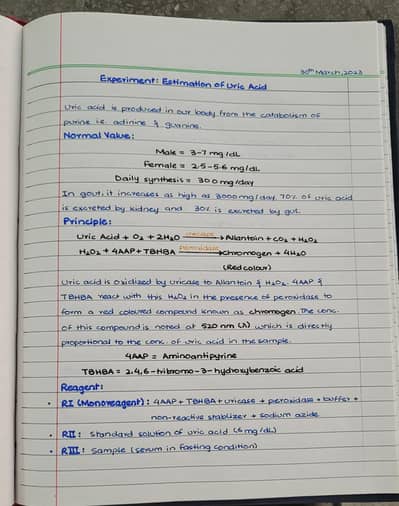 30th March, 2023
Experiment: Estimation of Uric Acid
Uric acid is produced in our body from the catabolism of
purine i.e. adinine & guanine.
Normal Value:
Male = 3-7 mg/dL
Female = 2.5-5.6 mg/dL
Daily synthesis = 300 mg/day
In gout, it increases as high as 3000mg/day. 70% of uric acid
is excreted by kidney and 30% is excreted by gut.
Principle:
Uric Acid + O2 + 2H2O uricase → Allantoin + CO2 + H2O2
H2O2 + 4AAP + TBHBA peroxidase → Chromogen + 4H2O
(Red colour)
Uric acid is oxidized by uricase to Allantoin & H2O2. 4AAP &
TBHBA react with this H2O2 in the presence of peroxidase to
form a red coloured compound known as chromogen. The conc.
of this compound is noted at 520 nm (λ) which is directly
proportional to the conc. of uric acid in the sample.
4AAP = Aminoantipyrine
TBHBA = 2,4,6-tribromo-3-hydroxybenzoic acid
Reagent:
• RI (Monoreagent): 4AAP + TBHBA + uricase + peroxidase + buffer +
non-reactive stabilizer + sodium azide.
• RII: Standard solution of uric acid (6 mg/dL)
• RIII: Sample (serum in fasting condition)